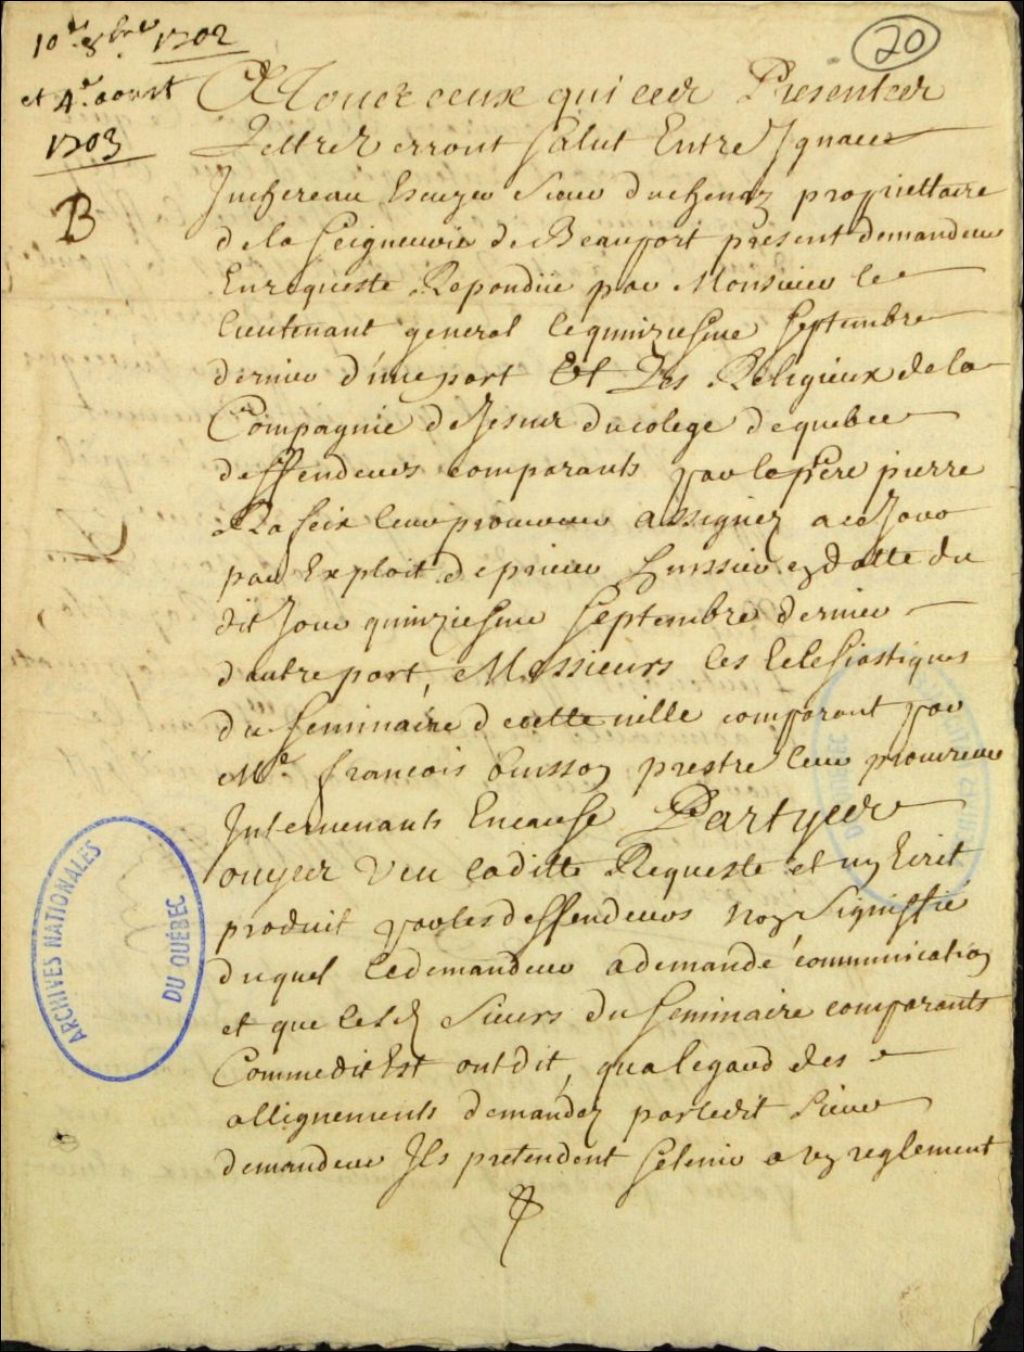 10e 8bre 1702
et 4e aoust
1703
B
20
A Toux ceux qui ces Presentes
Lettres verront Salut Entre Ignace
Juchereau Escuyer Sieur duchenay proprietaire
de la Seigneurie de Beauport present demandeur
En requeste Repondüe par Monsieur le
lieutenant general le quinziesme Septembre
dernier d'une part Et Les Religieux de la
Compagnie de Jesus du colege de quebec
deffendeurs comparants par le pere pierre
Rafeix leur procureur assignez a ce Jour
par Exploit de prieur huissier en datte du
dit Jour quinziesme Septembre dernier
dautre part, Messieurs les Eclesiastiques
du Seminaire de cette ville comparant par
Me francois buisson prestre leur procureur
Intervenants En cause Partyes
ouyes Veu laditte Requeste et un Ecrit
produit par les deffendeurs non Signiffié
duquel le demandeur a demandé communication
et que lesd Sieurs du Seminaire comparants
Comme dit Est ont dit, qua legard des
allignements demandez par ledit Sieur
demandeur Ils pretendent Se tenir a un reglement
ARCHIVES NATIONALES
DU QUÉBEC